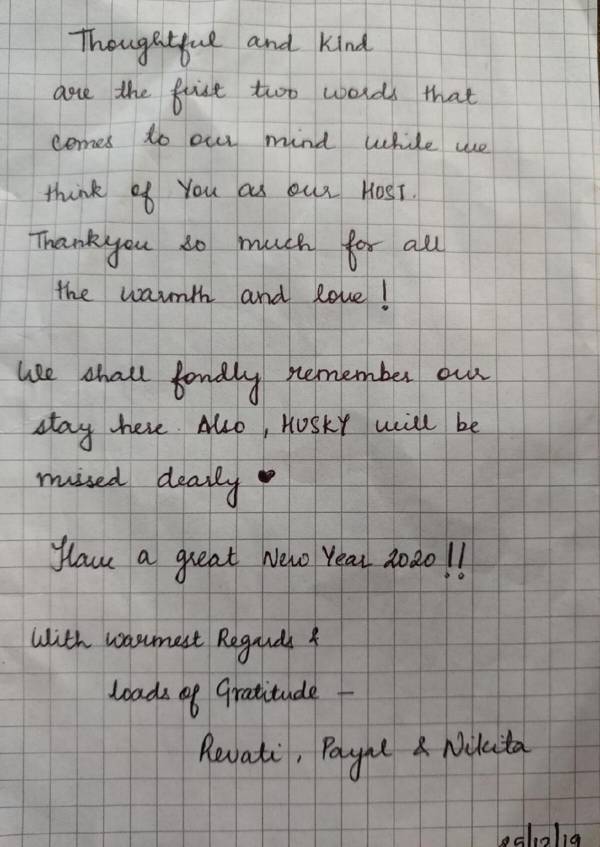 Thoughtful and Kind
are the first two words that
comes to our mind while we
think of You as our HOST.
Thankyou so much for all
the warmth and love!
We shall fondly remember our
stay here. Also, HUSKY will be
missed dearly ♥
Have a great New Year 2020!!
With warmest Regards &
loads of Gratitude –
Revati, Payal & Nikita
25/12/19